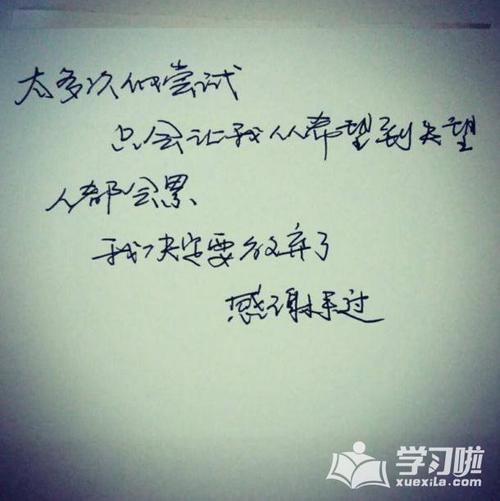 太多次的尝试
只会让我从希望到失望
人都会累
我决定要放弃了
感谢来过
学习啦
xuexila.com